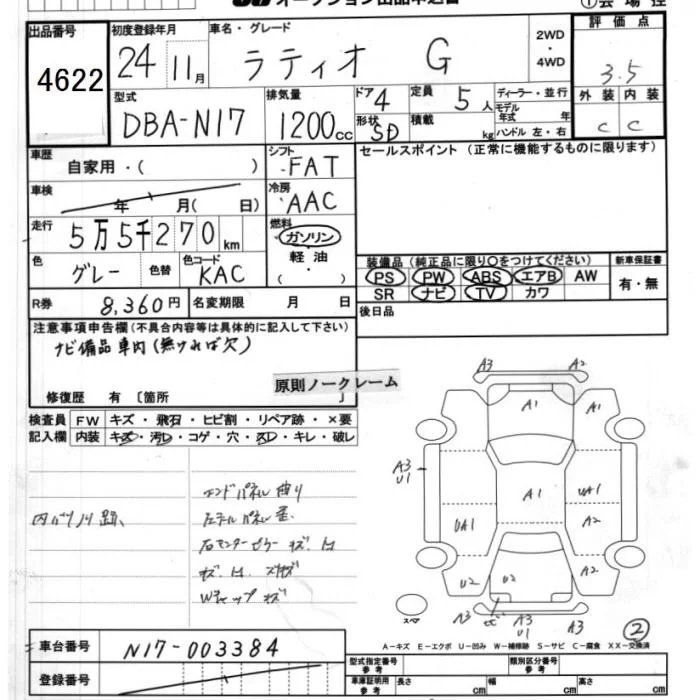 出品番号
4622
初度登録年月
24 11月
車名・グレード
ラティオ G
2WD
・
4WD
評価点
3.5
型式
DBA-N17
排気量
1200cc
ドア 4
形状 SD
定員 5人
積載 kg
ディーラー・並行
モデル年式 年
ハンドル 左・右
外装 内装
C C
車歴
自家用・( )
シフト
FAT
セールスポイント(正常に機能するものに限ります)
車検
年 月( 日)
冷房
AAC
走行
5万5千270km
燃料
ガソリン
軽油
( ・ )
色
グレー
色替
色コード
KAC
装備品(純正品に限り○をつけてください)
新車保証書
PS PW ABS エアB AW
SR ナビ TV カワ
有・無
R券 8,360円
名変期限 月 日
後日品
注意事項申告欄(不具合内容等は具体的に記入して下さい)
ナビ備品車内(無ければ欠)
原則ノークレーム
修復歴 有〔箇所 〕
検査員 FW キズ・飛石・ヒビ割・リペア跡・×要
記入欄 内装 キズ・汚レ・コゲ・穴・スレ・キレ・破レ
エンドパネル曲り
A3 A2
A1 A1
A3
U1
A1
UA1
UA1
A2
U2 U2 A2
A3
A3
U1
A3
スペア
2
A-キズ E-エクボ U-凹み W-補修跡 S-サビ C-腐食 XX-交換済
車台番号 N17-003384
登録番号
型式指定番号 参考
類別区分番号 参考
車庫証明用 参考 長さ cm 幅 cm 高さ cm